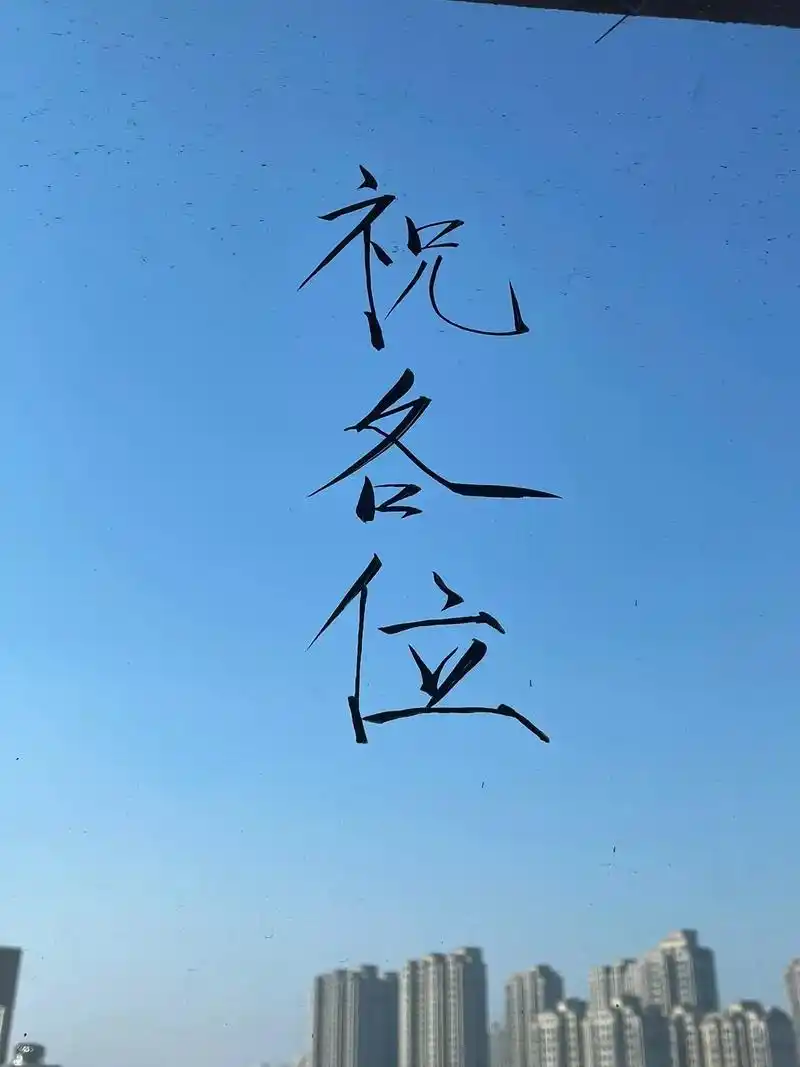 祝各位